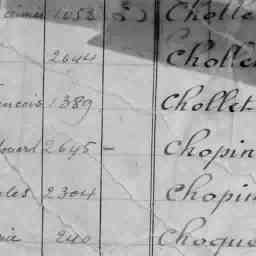 aimé 1053 Cholle
2644 Chollet
ancois 1389 Chollet
ouard 2645 - Chopin
les 2304 Chopin
ie 240 Choque